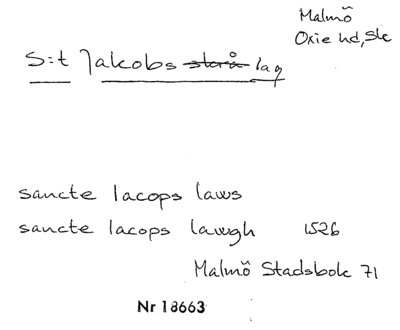 Malmö
Oxie hd, Sk
S:t Jakobs skrå lag
sancte Iacops laws
sancte Iacops lawgh 1526
Malmö Stadsbok 71
Nr 18663